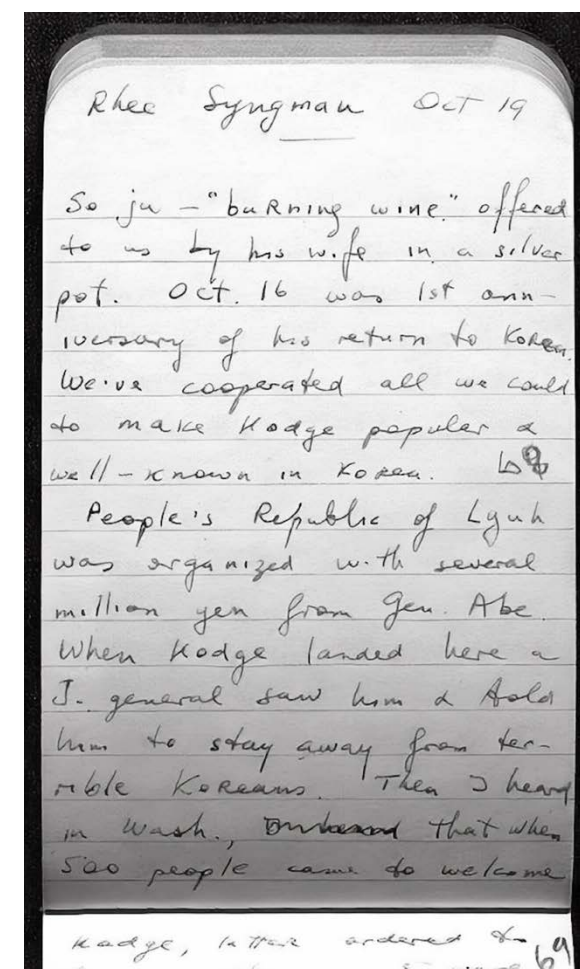 Rhee Syngman Oct 19
So ju - "buRning wine." offered
to us by his wife in a silver
pot. Oct. 16 was 1st ann-
iversary of his return to Korea.
We've cooperated all we could
to make Hodge popular &
well-known in Korea. 68
People's Republic of Lyuh
was organized with several
million yen from Gen. Abe.
When Hodge landed here a
J. general saw him & told
him to stay away from ter-
rible Koreans. Then I heard
in Wash., that when
500 people came to welcome
Hodge, latter ordered
69